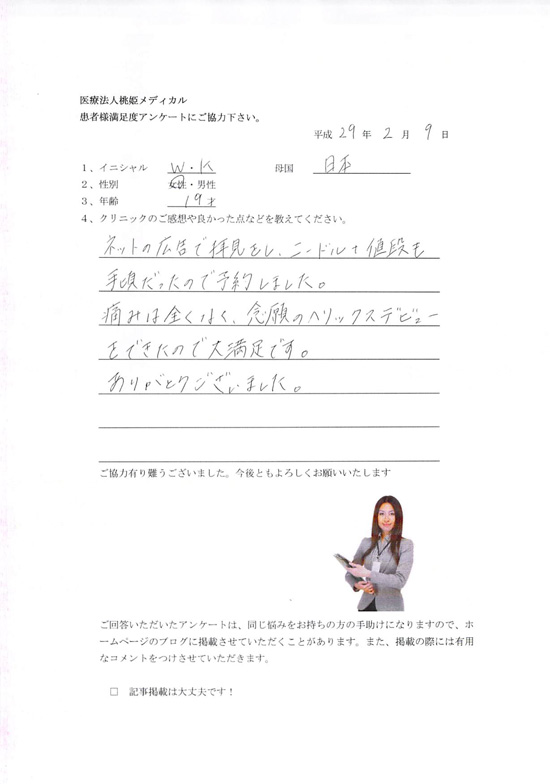 医療法人桃姫メディカル
患者様満足度アンケートにご協力下さい。
平成 29 年 2 月 9 日
1、イニシャル W・K 母国 日本
2、性別 女性・男性
3、年齢 19才
4、クリニックのご感想や良かった点などを教えてください。
ネットの広告で拝見をし、ニードル+値段も
手頃だったので予約しました。
痛みは全くなく、念願のヘリックスデビュー
をできたので大満足です。
ありがとうございました。
ご協力有り難うございました。今後ともよろしくお願いいたします
ご回答いただいたアンケートは、同じ悩みをお持ちの方の手助けになりますので、ホ
ームページのブログに掲載させていただくことがあります。また、掲載の際には有用
なコメントをつけさせていただきます。
□ 記事掲載は大丈夫です！